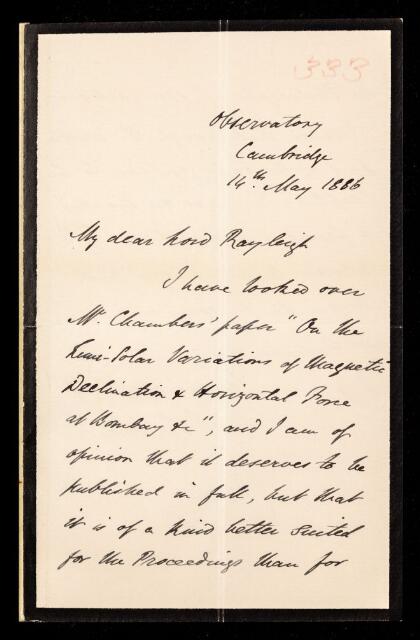 333
Observatory
Cambridge
14th. May 1886
My dear Lord Rayleigh
I have looked over
Mr. Chambers' paper "On the
Luni-Solar Variations of Magnetic
Declination & Horizontal Force
at Bombay &c", and I am of
opinion that it deserves to be
published in full, but that
it is of a kind better suited
for the Proceedings than for